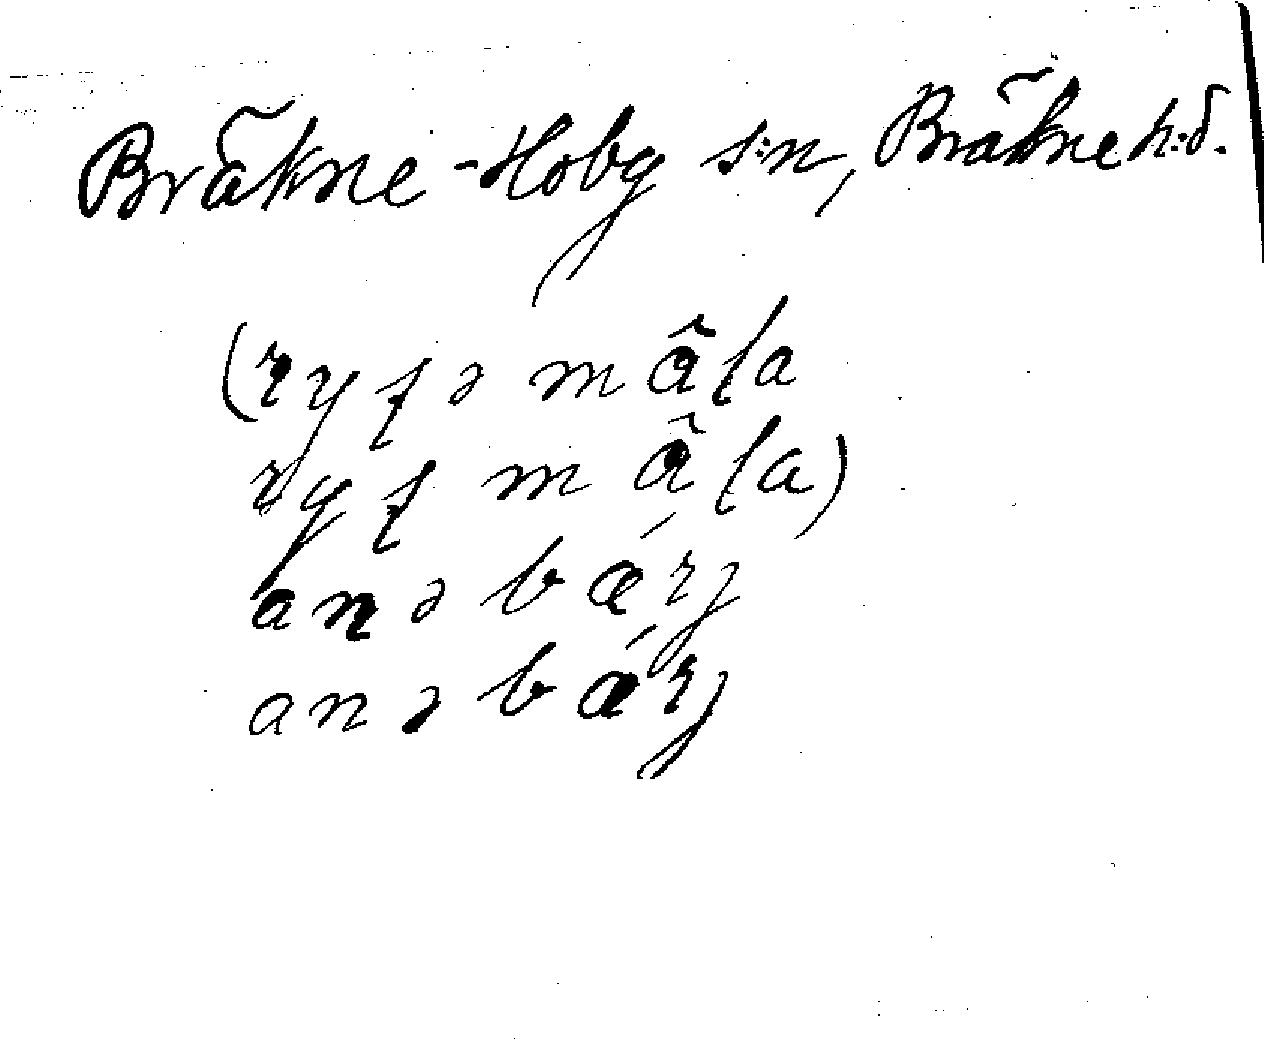 Bräkne-Hoby s:n, Bräkne h:d.
(ryʂə må̂ɭa
ryʂ må̂ɭa)
anəbǽrj
anəbǽrj